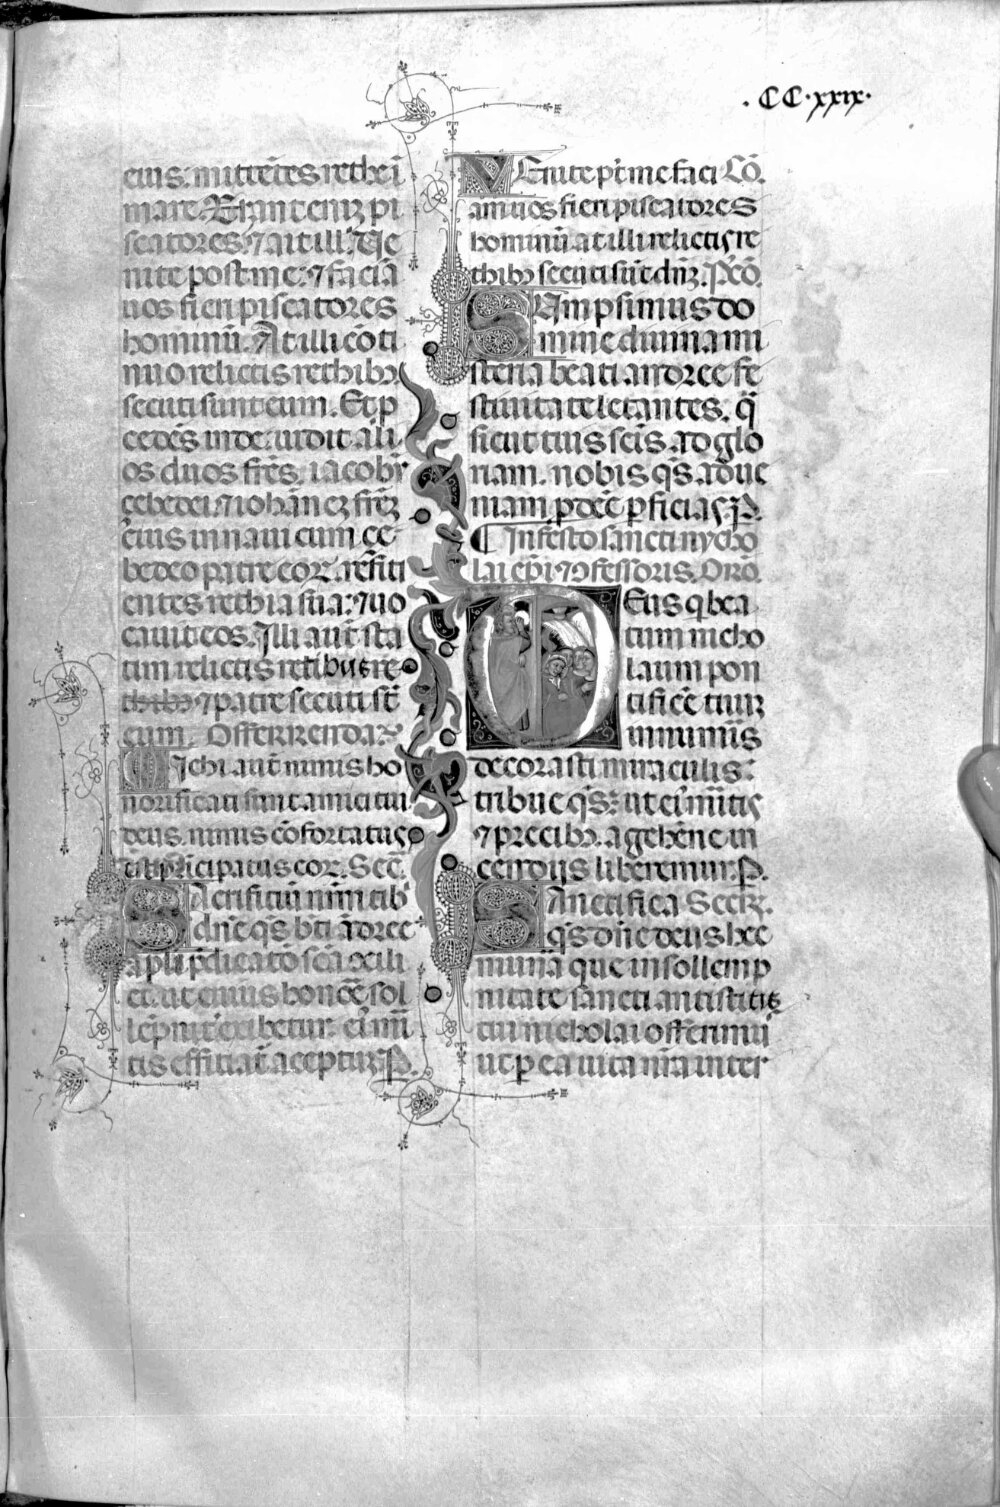 .CC.xxix.
eius. mittētes rethe ī
mare. Erant enī pi
scatores. ⁊ ait illis. Ue
nite post me: ⁊ faciā
uos fieri piscatores
hominū. At illi cōti
nuo relictis rethibꝫ
secuti sunt eum. Et p
cedēs inde: uidit ali
os duos frēs. iacobū
cebedei ⁊ iohānem frēꝫ
eius in naui cum ce
bedeo patre eoꝝ. refiti
entes rethia sua: ⁊ uo
cauit eos. Illi aut̄ sta
tim relictis retibus re
thibꝫ ⁊ patre secuti sūt
eum. Offerrendaꝝ
Michi aut̄ nimis ho
norificati sunt amici tui
deus. nimis cōfortatus
ē prīcipatus eoꝝ. Secr̄.
Sacrificiū nr̄m tibi
dn̄e qs̄ bt̄i ādree
apl̄i p̄dicatō scā cōcili
et. ut cuius honōe sol
lēpnit̄ exibetur: ei mī
tis efficiat̄ aceptuꝝ. P.
Uenite pt̄ me faci Cō.
am uos fieri piscatores
hominū at illi relictis re
thibꝫ secuti sūt dn̄ꝫ. Pꝰcō.
Sumpsimus do
mine diuina mi
steria beati andree fe
stiuitate letantes. q̄
sicut tuis scīs. ad glo
riam. nobis qs̄ ad ue
niam p̄deē pficias. P.
¶ In festo sancti nycho
lai ep̄i ⁊ ↄfessoris. Orō.
Deus q bea
tum nicho
laum pon
tificē tuuꝫ
innumīs
decorasti miraculis:
tribue qs̄: ut eiꝰ mītis
⁊ precibꝫ. a gehēne in
cendiis liberemur. P.
Sanctifica Secꝝ.
qs̄ dn̄e deus hec
munā que in sollemp
nitate sancti antistitis
tui nicholai offerimuꝰ
ut p ea uita nr̄a inter